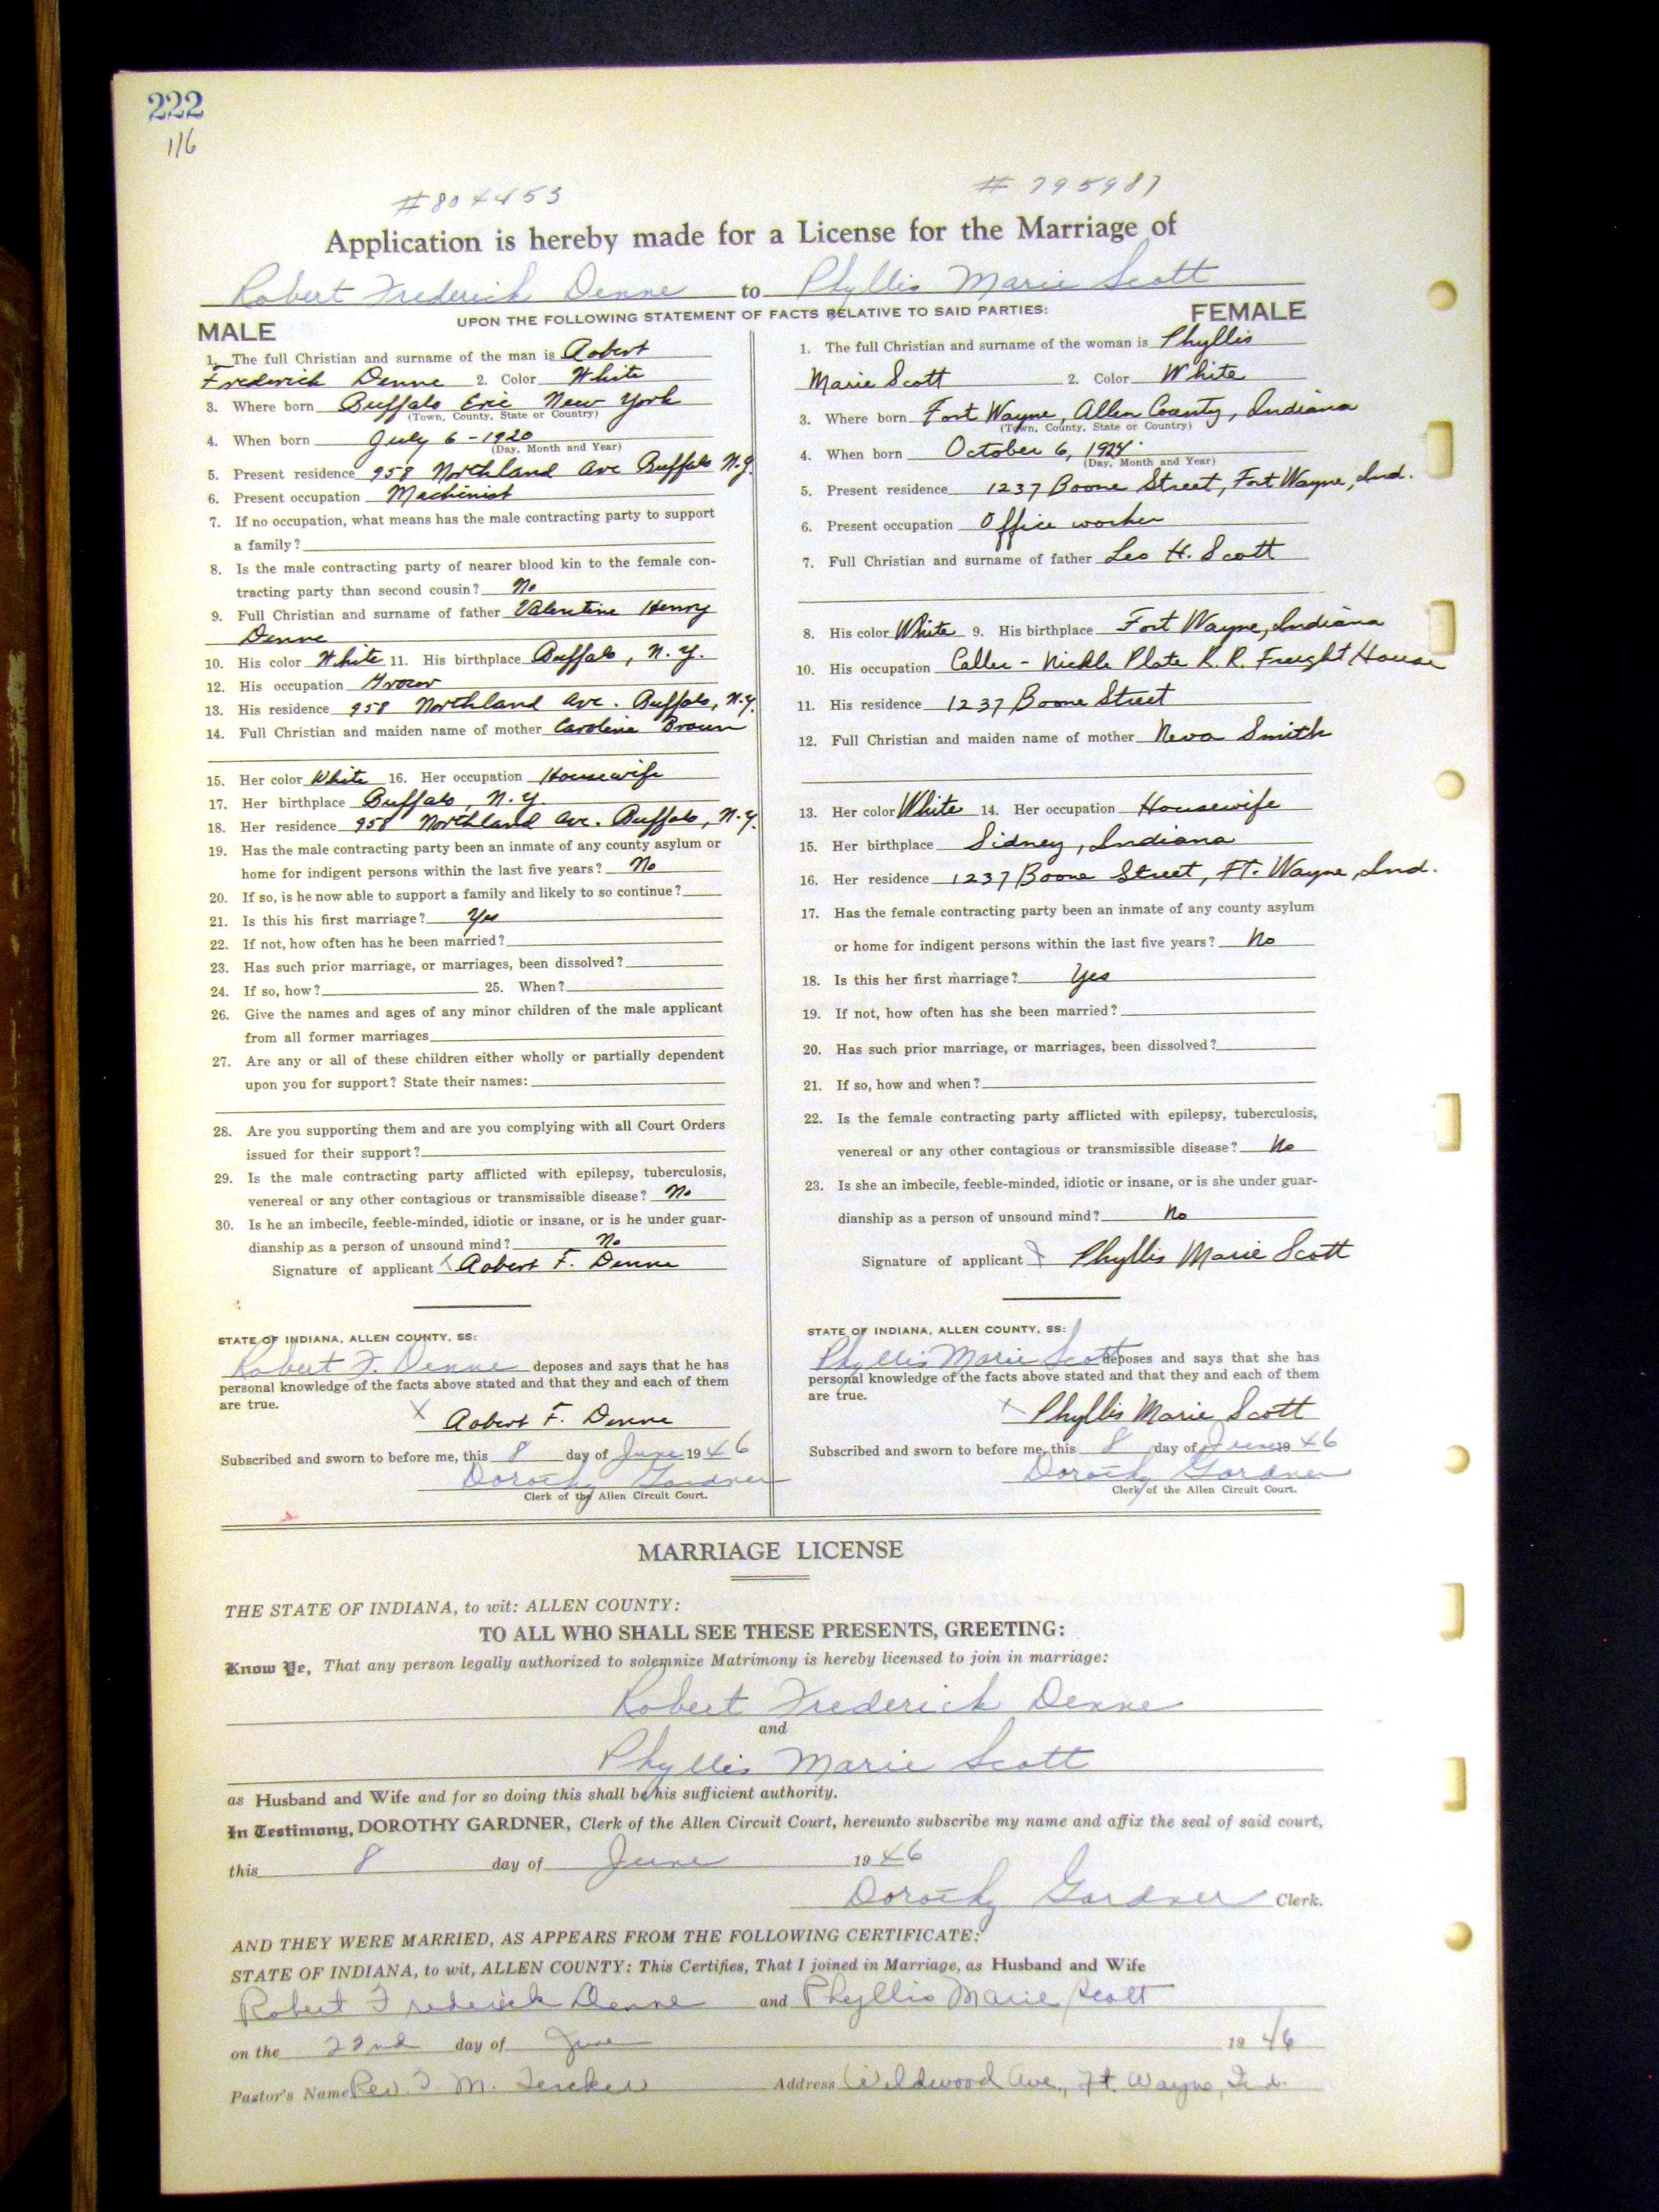 222
116
#804453
#795987
Application is hereby made for a License for the Marriage of
Robert Frederick Denne to Phyllis Marie Scott
UPON THE FOLLOWING STATEMENT OF FACTS RELATIVE TO SAID PARTIES:
MALE
1. The full Christian and surname of the man is Robert
Frederick Denne 2. Color White
3. Where born Buffalo Erie New York
(Town, County, State or Country)
4. When born July 6-1920
(Day, Month and Year)
5. Present residence 958 Northland Ave Buffalo N.Y.
6. Present occupation Machinist
7. If no occupation, what means has the male contracting party to support
a family?
8. Is the male contracting party of nearer blood kin to the female con-
tracting party than second cousin? No
9. Full Christian and surname of father Valentine Henry
Denne
10. His color White 11. His birthplace Buffalo, N.Y.
12. His occupation Grocer
13. His residence 958 Northland Ave. Buffalo, N.Y.
14. Full Christian and maiden name of mother Caroline Braun
15. Her color White 16. Her occupation Housewife
17. Her birthplace Buffalo, N.Y.
18. Her residence 958 Northland Ave. Buffalo, N.Y.
19. Has the male contracting party been an inmate of any county asylum or
home for indigent persons within the last five years? No
20. If so, is he now able to support a family and likely to so continue?
21. Is this his first marriage? Yes
22. If not, how often has he been married?
23. Has such prior marriage, or marriages, been dissolved?
24. If so, how? 25. When?
26. Give the names and ages of any minor children of the male applicant
from all former marriages
27. Are any or all of these children either wholly or partially dependent
upon you for support? State their names:
28. Are you supporting them and are you complying with all Court Orders
issued for their support?
29. Is the male contracting party afflicted with epilepsy, tuberculosis,
venereal or any other contagious or transmissible disease? No
30. Is he an imbecile, feeble-minded, idiotic or insane, or is he under guar-
dianship as a person of unsound mind? No
Signature of applicant X Robert F. Denne
STATE OF INDIANA, ALLEN COUNTY, SS:
Robert F. Denne deposes and says that he has
personal knowledge of the facts above stated and that they and each of them
are true.
X Robert F. Denne
Subscribed and sworn to before me, this 8 day of June 1946
Dorothy Gardner
Clerk of the Allen Circuit Court.
FEMALE
1. The full Christian and surname of the woman is Phyllis
Marie Scott 2. Color White
3. Where born Fort Wayne, Allen County, Indiana
(Town, County, State or Country)
4. When born October 6, 1924
(Day, Month and Year)
5. Present residence 1237 Boone Street, Fort Wayne, Ind.
6. Present occupation Office worker
7. Full Christian and surname of father Leo H. Scott
8. His color White 9. His birthplace Fort Wayne, Indiana
10. His occupation Caller - Nickle Plate R.R. Freight House
11. His residence 1237 Boone Street
12. Full Christian and maiden name of mother Neva Smith
13. Her color White 14. Her occupation Housewife
15. Her birthplace Sidney, Indiana
16. Her residence 1237 Boone Street, Ft. Wayne, Ind.
17. Has the female contracting party been an inmate of any county asylum
or home for indigent persons within the last five years? No
18. Is this her first marriage? Yes
19. If not, how often has she been married?
20. Has such prior marriage, or marriages, been dissolved?
21. If so, how and when?
22. Is the female contracting party afflicted with epilepsy, tuberculosis,
venereal or any other contagious or transmissible disease? No
23. Is she an imbecile, feeble-minded, idiotic or insane, or is she under guar-
dianship as a person of unsound mind? No
Signature of applicant X Phyllis Marie Scott
STATE OF INDIANA, ALLEN COUNTY, SS:
Phyllis Marie Scott deposes and says that she has
personal knowledge of the facts above stated and that they and each of them
are true.
X Phyllis Marie Scott
Subscribed and sworn to before me, this 8 day of June 1946
Dorothy Gardner
Clerk of the Allen Circuit Court.
MARRIAGE LICENSE
THE STATE OF INDIANA, to wit: ALLEN COUNTY:
TO ALL WHO SHALL SEE THESE PRESENTS, GREETING:
Know Ye, That any person legally authorized to solemnize Matrimony is hereby licensed to join in marriage:
Robert Frederick Denne
and
Phyllis Marie Scott
as Husband and Wife and for so doing this shall be his sufficient authority.
In Testimony, DOROTHY GARDNER, Clerk of the Allen Circuit Court, hereunto subscribe my name and affix the seal of said court,
this 8 day of June 1946
Dorothy Gardner Clerk.
AND THEY WERE MARRIED, AS APPEARS FROM THE FOLLOWING CERTIFICATE:
STATE OF INDIANA, to wit, ALLEN COUNTY: This Certifies, That I joined in Marriage, as Husband and Wife
Robert Frederick Denne and Phyllis Marie Scott
on the 22nd day of June 1946
Pastor's Name Rev. M. Address Wildwood Ave., Ft. Wayne, Ind.